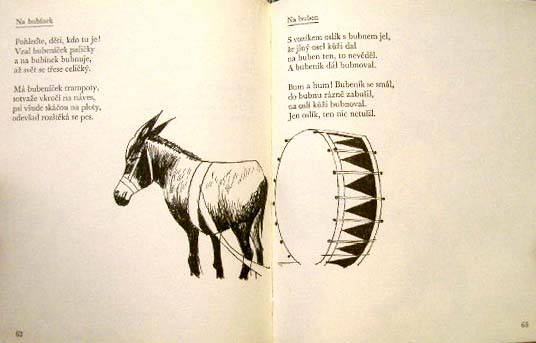 Na bubínek
Pohleďte, děti, kdo tu je!
Vzal bubeníček paličky
a na bubínek bubnuje,
až svět se třese celičký.
Má bubeníček trampoty,
sotvaže vkročí na náves,
psi všude skáčou na ploty,
odevšad rozštěká se pes.
62
Na buben
S vozíkem oslík s bubnem jel,
že jiný osel kůži dal
na buben ten, to nevěděl.
A bubeník dál bubnoval.
Bum a bum! Bubeník se smál,
do bubnu rázně zabušil,
na oslí kůži bubnoval.
Jen oslík, ten nic netušil.
63